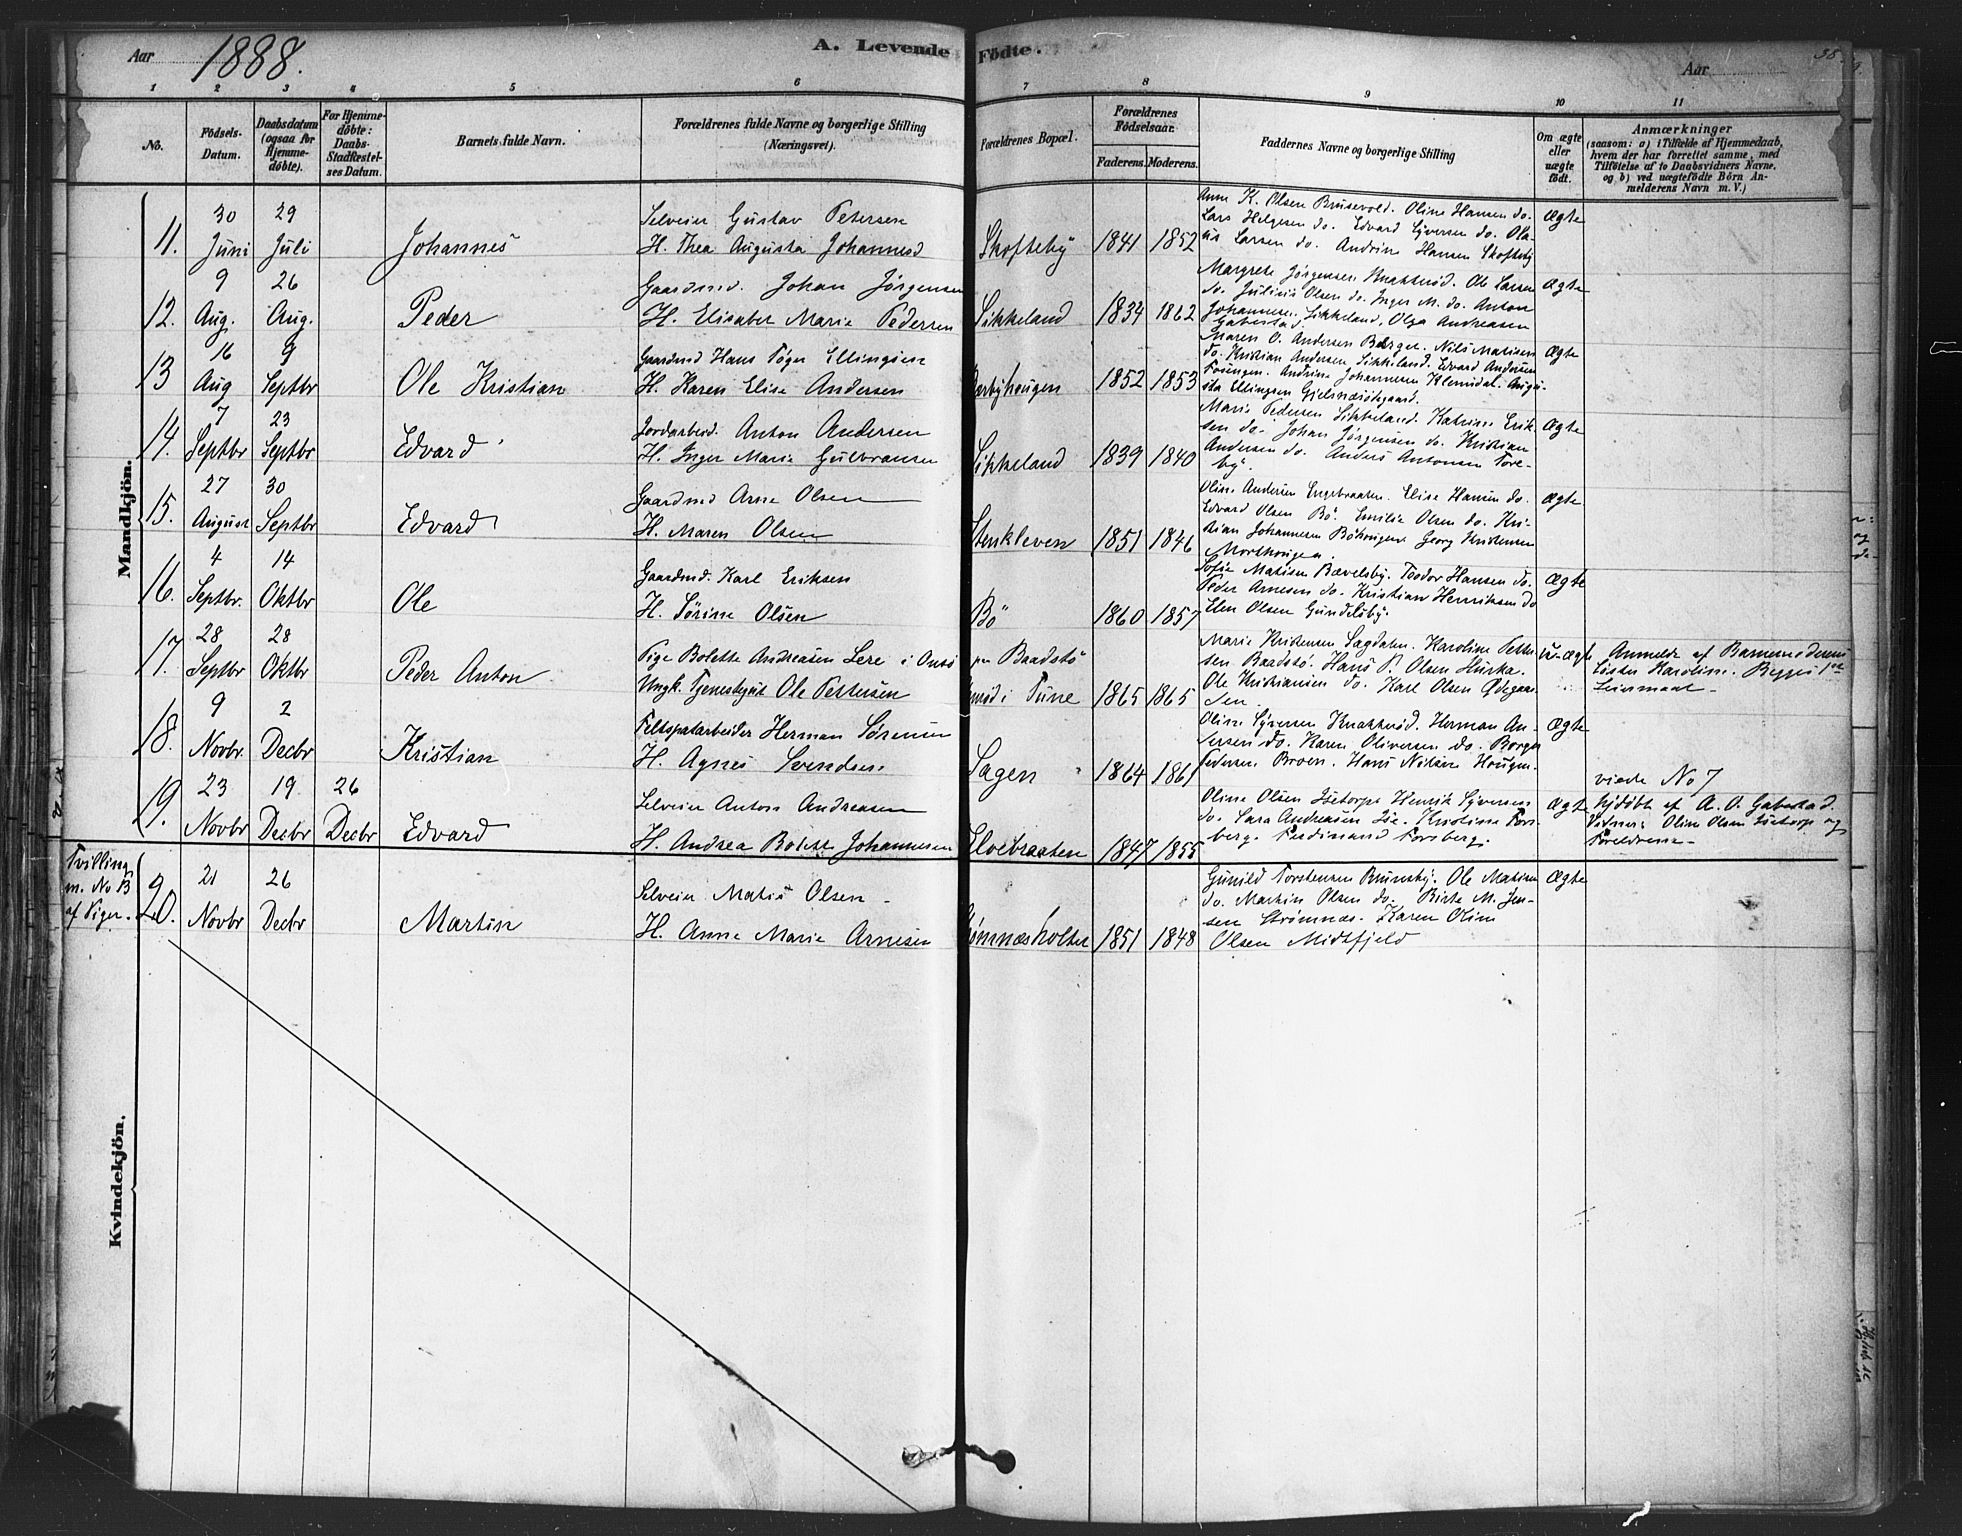 Aar 1888.
A. Levende Födte.
38.
Aar
1 2 3 4 5 6 7 8 9 10 11
No.
Födsels-
Datum.
Daabsdatum
(ogsaa for
Hjemme-
döbte).
For Hjemme-
döbte:
Daabs-
Stadfæstel-
ses Datum.
Barnets fulde Navn.
Forældrenes fulde Navne og borgerlige Stilling
(Næringsvei).
Forældrenes Bopæl.
Forældrenes
Födselsaar.
Faderens. Moderens.
Faddernes Navne og borgerlige Stilling
Om ægte
eller
uægte
födt.
Anmærkninger
(saasom: a) i Tilfælde af Hjemmedaab,
hvem der har forrettet samme, med
Tilföielse af to Daabsvidners Navne,
og b) ved uægtefödte Börn An-
melderens Navn m. V.)
Mandkjön.
11.
30
Juni
29
Juli
Johannes
Selveier Gustav Petersen
H. Thea Augusta Johannesd
Skofteby
1841 1852
Anne K. Olsen Brusevold. Oline Hansen do.
Lars Helgesen do. Edvard Syversen do. Ola-
us Larsen do. Andrine Hansen Skofteby
Ægte
12.
9
Aug.
26
Aug.
Peder
Gaardmd. Johan Jørgensen
H. Elisabet Marie Pedersen
Sikkeland
1834 1862
Margrete Jørgensen Knatterød. Ole Larsen
do. Julius Olsen do. Inger M. do. Anton
Johannesen Sikkeland. Olga Andreasen
Gabestad.
Ægte
13
16
Aug
9
Septbr
Ole Kristian
Gaardmd Hans Tøger Ellingsen
H. Karen Elise Andersen
1852 1853
Maren O. Andersen Berger. Nils Matisen
do. Kristian Andersen Sikkeland. Edvard Andersen
Fosengen. Andrine Johannesen Klemidal. Augu-
sta Ellingsen Gjelsnæsødegaard.
Ægte
14.
7
Septbr
23
Septbr
Edvard
Jordarbeid. Anton Andersen
H. Inger Marie Gulbransen
Sikkeland
1839 1840
Marie Pedersen Sikkeland. Katrine Erik-
sen do. Johan Jørgensen do. Kristian
Andersen do. Anders Antonsen Tore-
by.
Ægte
15.
27
August
30
Septbr
Edvard
Gaardmd Arne Olsen
H. Maren Olsen
Stenkleven
1851 1846
Oline Andersen Engebraaten. Elise Hansen do.
Edvard Olsen Bö. Emilie Olsen do. Kri-
stian Johannesen Böhougen. Georg Kristensen
Morthougen.
Ægte
16.
4
Septbr.
14
Oktbr
Ole
Gaardmd. Karl Eriksen
H. Sörine Olsen
Bö
1860 1857
Sofie Matisen Bævelsby. Teodor Hansen do.
Peder Arnesen do. Kristian Henriksen do
Elen Olsen Gundelsby.
Ægte
17.
28
Septbr
28
Oktbr
Peder Anton
Pige Bolette Andreasen Lere i Onsö
Ungk. Tjenestegut Ole Pettersen
pr Baadstö
i Tune
1865 1865
Marie Kristensen Sagdalen. Karoline Petter-
sen. Baadstö. Hans P. Olsen Hurka.
Ole Kristiansen do. Karl Olsen Ødegaar-
den.
U-ægte
Anmeldt af Barnemoderens
Söster Karoline. Begges 1ste
Leiermaal.
18.
9
Novbr.
2
Decbr
Kristian
Feltspatarbeider Herman Sörensen
H. Agnes Svendsen
Sagen
1864 1861
Oline Syversen Knatterød. Herman An-
dersen do. Karen Oliversen do. Borger
Pedersen Broen. Hans Nilsen Hougen.
Ægte
viede No 7
19.
23
Novbr
19.
Decbr
26
Decbr
Edvard
Selveier Anton Andreasen
H. Andrea Bolette Johannesen
Elvebraaten
1847 1855
Oline Olsen Isetorp. Henrik Syversen
do. Lars Andreasen Ise. Kristine Fors-
berg. Ferdinand Forsberg.
Ægte
hjdöbt af A. O. Gabestad.
Vidner: Oline Olsen Isetorp og
Forældrene.
Tvilling
m. No 13
af Piger.
20.
21
Novbr
26
Decbr
Martin
Selveier Matis Olsen
H. Anne Marie Arnesen
1851 1848
Gunild Torstensen Brunsby. Ole Matisen
do. Martin Olsen do. Birte M. Jen-
sen Strömnæs. Karen Oline
Olsen Midtfjeld
Ægte
Kvindekjön.